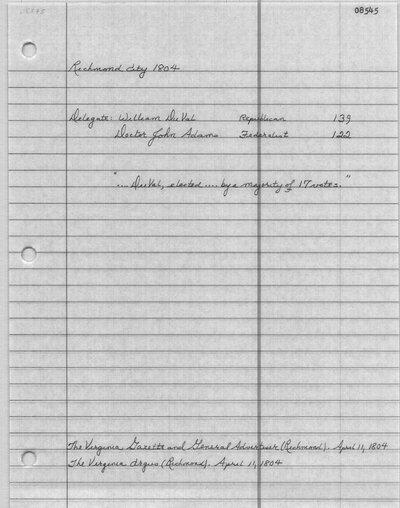 08545
08545
Richmond City 1804
Delegate: William DuVal Republican 139
Doctor John Adams Federalist 122
".... DuVal, elected .... by a majority of 17 votes."
The Virginia Gazette and General Advertiser (Richmond). April 11, 1804
The Virginia Argus (Richmond). April 11, 1804